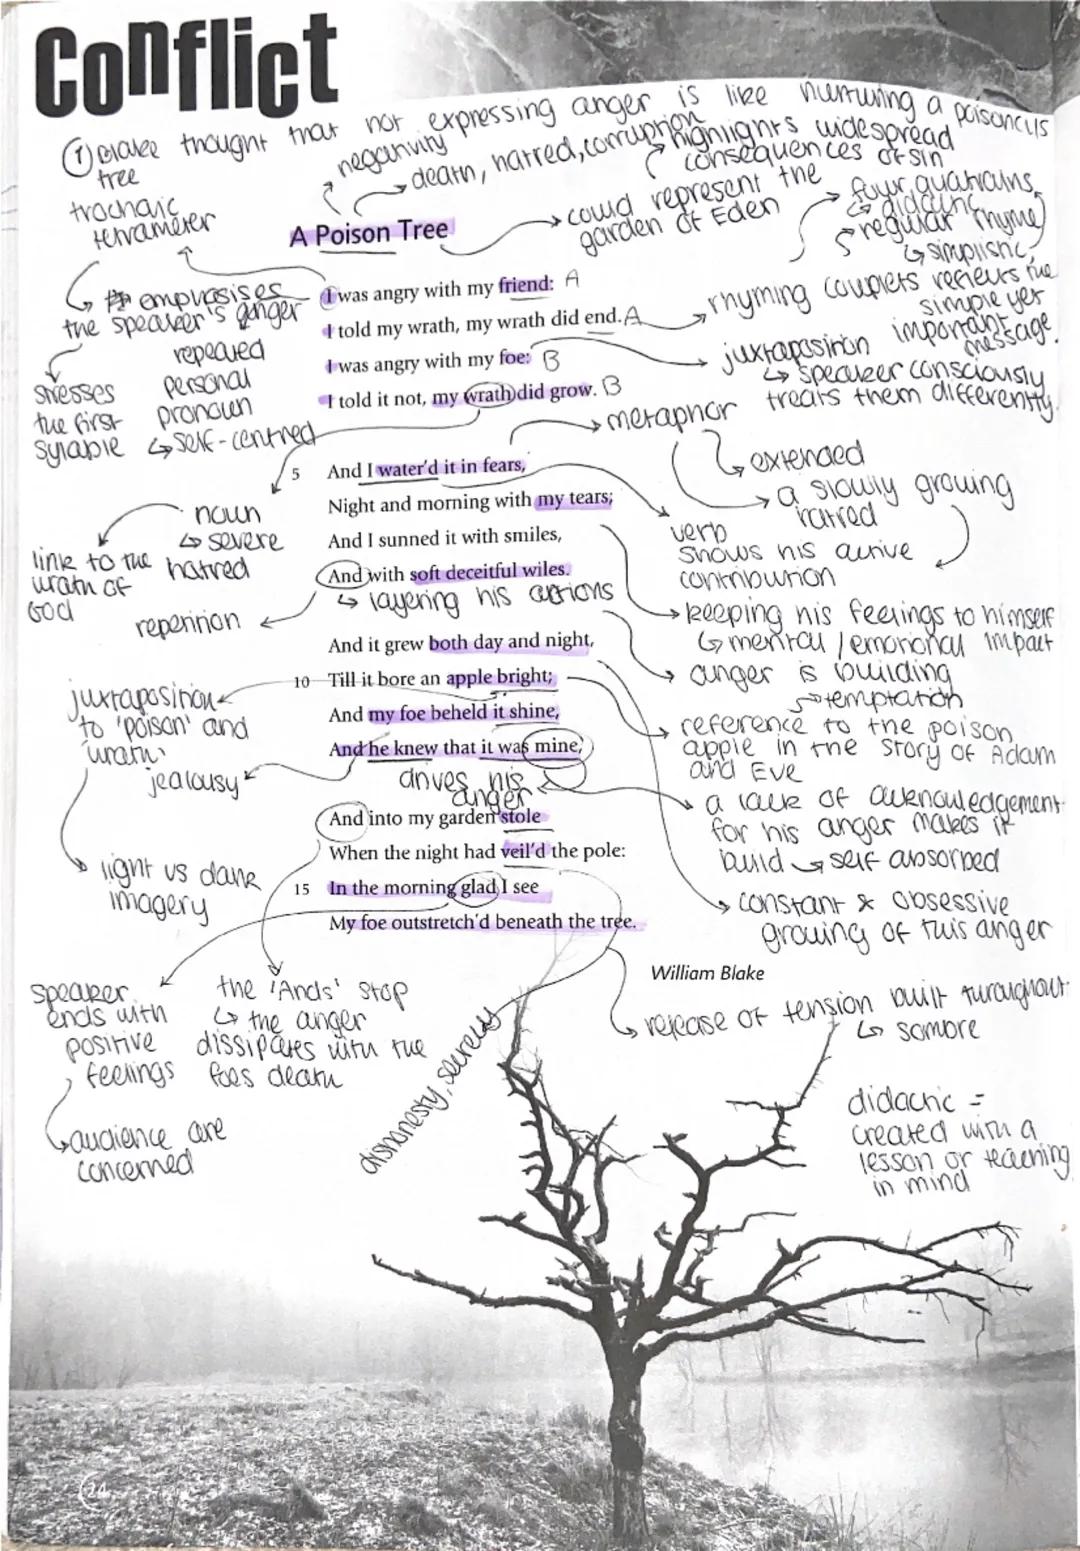 Conflict
① Blake thought that not expressing anger is like nurturing a poisonous
tree
negativity
death, hatred, corruption
highlights widespread
consequences of sin
could represent the
garden of Eden
four quatrains
↳ didactic
regular rhyme
↳ simplistic,
rhyming couplets reflects the
simple yet
important
message.
trochaic
tetrameter
↳ emphasises
the speaker's anger
stresses
the first
sylable
repeated
personal
pronoun
↳ self-centred
A Poison Tree
I was angry with my friend: A
I told my wrath, my wrath did end. A
I was angry with my foe: B
I told it not, my wrath did grow. B
juxtaposition
↳ speaker consciously
treats them differently
metaphor
↳ extended
a slowly growing
hatred
5 And I water'd it in fears,
Night and morning with my tears;
And I sunned it with smiles,
And with soft deceitful wiles.
↳ layering his actions
noun
↳ severe
hatred
link to the
wrath of
God
repetition
verb
shows his active
contribution
keeping his feelings to himself
↳ mental / emotional impact
And it grew both day and night,
10 Till it bore an apple bright;
And my foe beheld it shine,
And he knew that it was mine,
drives his
anger
anger is building
temptation
reference to the poison
apple in the story of Adam
and Eve
a lack of acknowledgement
for his anger makes it
build → self absorbed
constant & obsessive
growing of this anger
juxtaposition
to 'poison' and
'wrath'
jealousy
light vs dark
imagery
And into my garden stole
When the night had veil'd the pole:
15 In the morning glad I see
My foe outstretch'd beneath the tree.
William Blake
speaker
ends with
positive
feelings
↳ audience are
concerned
the 'Ands' stop
↳ the anger
dissipates with the
foes death
dishonesty, secrecy
release of tension built throughout
↳ sombre
didactic =
created with a
lesson or teaching
in mind
24